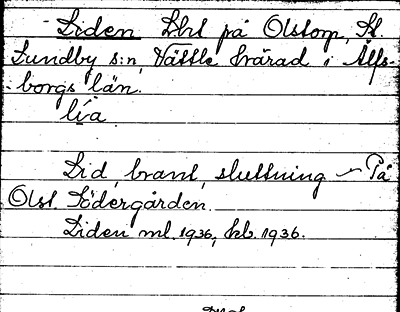 Liden Lht på Olstorp, St.
Lundby s:n, Vättle härad i Älfs-
borgs län.
lía
Lid, brant, sluttning – På
Olst. Södergården.
Liden ml. 1936, kb. 1936.